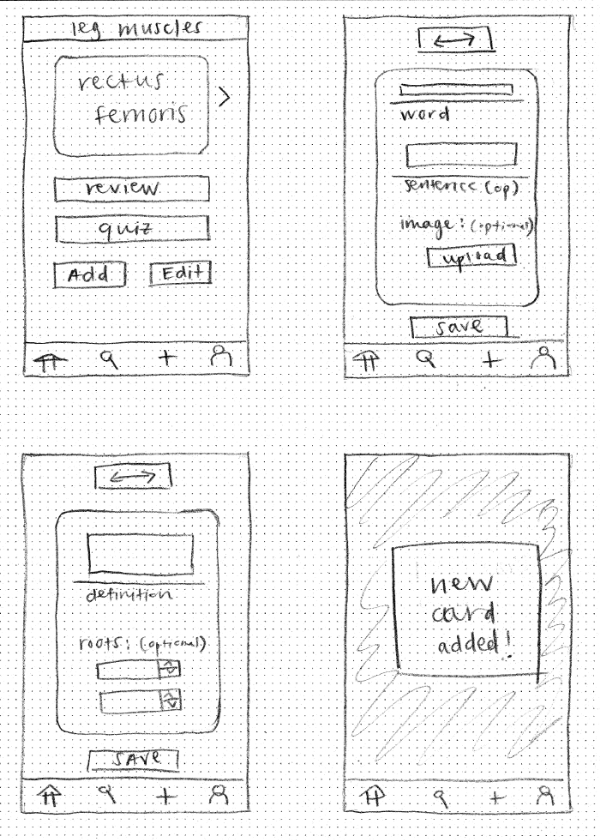 leg muscles
rectus
femoris
review
quiz
Add
Edit
word
sentence (op)
image: (optional)
upload
save
definition
roots: (optional)
SAVE
new
card
added!